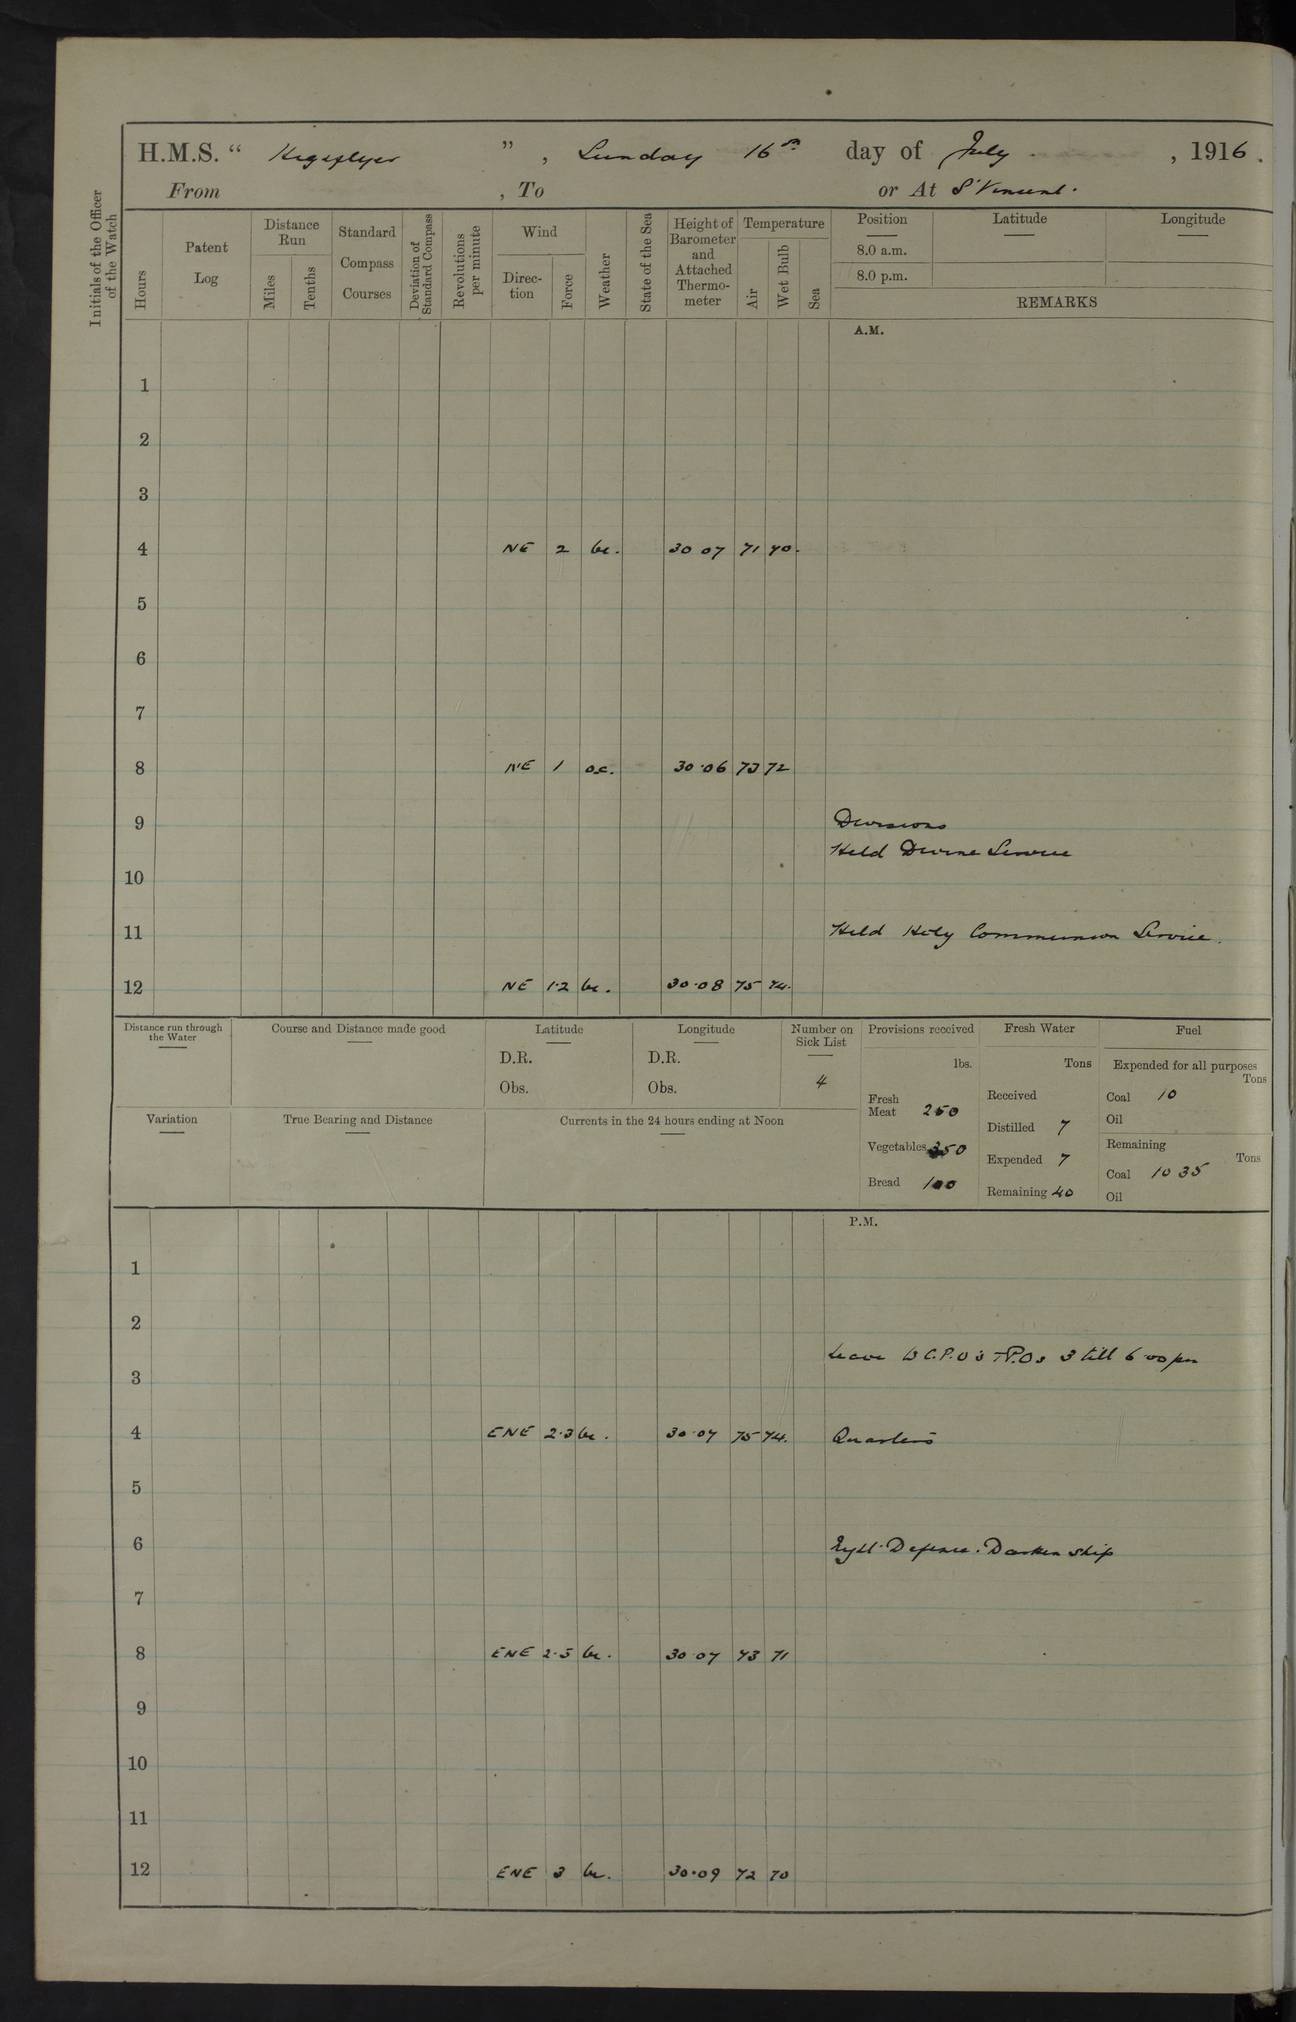 H.M.S. “ Highflyer ” , Sunday 16th day of July , 1916.
From , To or At St Vincent.
Initials of the Officer of the Watch
Hours
Patent Log
Distance Run
Miles
Tenths
Standard Compass Courses
Deviation of Standard Compass
Revolutions per minute
Wind
Direc-tion
Force
Weather
State of the Sea
Height of Barometer and Attached Thermo-meter
Temperature
Air
Wet Bulb
Sea
Position Latitude Longitude
8.0 a.m.
8.0 p.m.
REMARKS
A.M.
1
2
3
4 NE 2 bc. 30 07 71 70.
5
6
7
8 NE 1 oc. 30·06 73 72
9 Divisions
Held Divine Service
10
11 Held Holy Communion Service.
12 NE 1·2 bc. 30·08 75 74.
Distance run through the Water
Course and Distance made good
Latitude
D.R.
Obs.
Longitude
D.R.
Obs.
Number on Sick List
4
Variation
True Bearing and Distance
Currents in the 24 hours ending at Noon
Provisions received
lbs.
Fresh Meat 250
Vegetables 350
Bread 100
Fresh Water
Tons
Received
Distilled 7
Expended 7
Remaining 40
Fuel
Expended for all purposes
Tons
Coal 10
Oil
Remaining
Tons
Coal 1035
Oil
P.M.
1
2
Leave to C.P.O's & P.Os 3 till 6·00 pm
3
4 ENE 2·3 bc. 30·07 75 74. Quarters
5
6 Defence. Darken ship
7
8 ENE 2·3 bc. 30 07 73 71
9
10
11
12 ENE 3 bc. 30·09 72 70